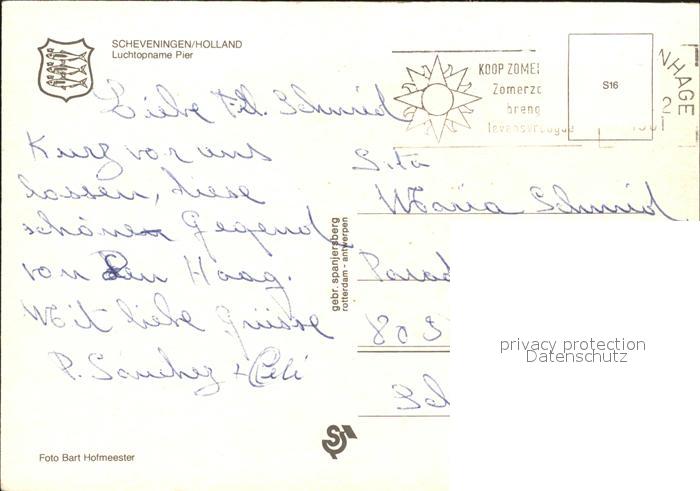 SCHEVENINGEN/HOLLAND
Luchtopname Pier
KOOP ZOME
Zomerzo
breng
levensvreugde
NHAGE
S16
Liebe Frl. Schmid
Kurz vor uns
lassen, diese
schönen Gegend
von Den Haag.
Mit liebe Grüsse
P. Sánchez +
Maria Schmid
Parad
803
Sch
gebr. spanjersberg
rotterdam - antwerpen
privacy protection
Datenschutz
Foto Bart Hofmeester